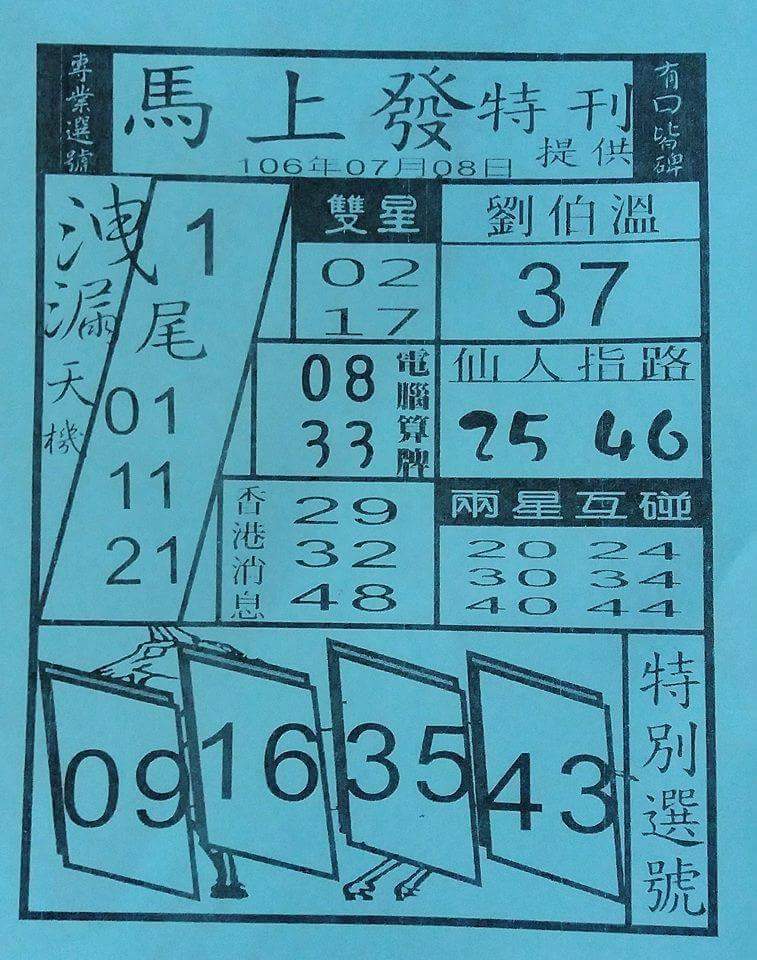 專業選號
馬上發特刊
提供
106年07月08日
有口皆碑
洩漏天機
1
尾
01
11
21
雙星
02
17
劉伯溫
37
08
33
電腦算牌
仙人指路
25 46
香港消息
29
32
48
兩星互碰
20 24
30 34
40 44
09 16 35 43
特別選號